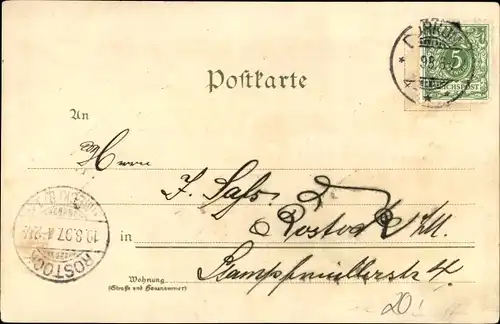 5
REICHSPOST
Postkarte
An
Herrn
J. Sass
Rostock i/M.
in
Stampfmüllerstr 4
Wohnung
(Straße und Hausnummer)
10.8.97
ROSTOCK
20